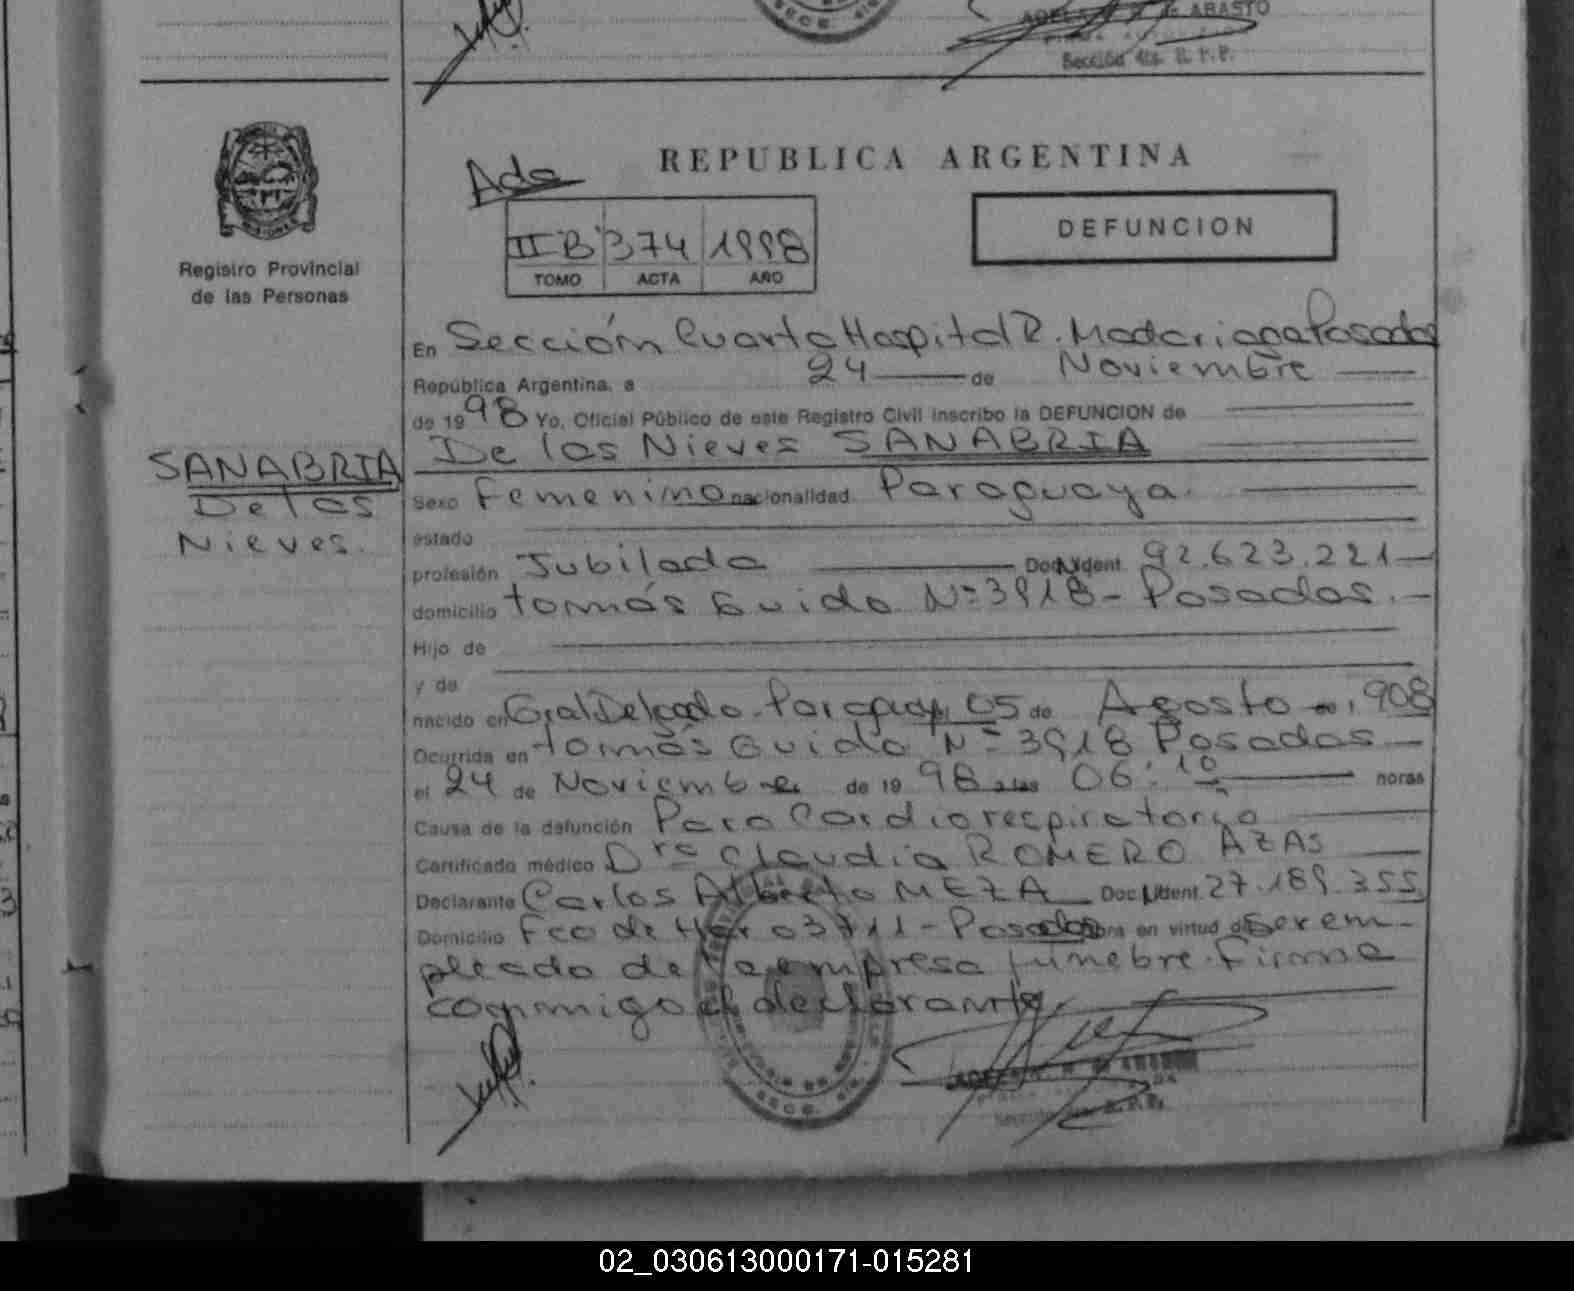 ABASTO
Sección 4ta. R. P. P.
Registro Provincial
de las Personas
REPUBLICA ARGENTINA
Ada
II B 374 1998
TOMO ACTA AÑO
DEFUNCION
SANABRIA
De las
Nieves.
En Sección Cuarta Hospital R. Madariaga Posadas
República Argentina, a 24 de Noviembre
de 1998 Yo, Oficial Público de este Registro Civil inscribo la DEFUNCION de
De las Nieves SANABRIA
Sexo Femenino nacionalidad Paraguaya.
estado
profesión Jubilada Doc. Ident. 92.623.221
domicilio tomás Guido Nº 3918 - Posadas.
Hijo de
y de
nacido en Gral Delgado - Paraguay, 05 de Agosto 1.908
Ocurrida en tomás Guido Nº 3918 Posadas
el 24 de Noviembre de 1998 a las 06:10 horas
Causa de la defunción Paro Cardiorespiratorio
Certificado médico Dra Claudia ROMERO AZAS
Declarante Carlos Alberto MEZA Doc. Ident. 27.189.355
Domicilio Fco de Haro 3711 - Posadas obra en virtud de Ser em-
pleado de la empresa fúnebre. Firma
conmigo el declarante.
02_030613000171-015281